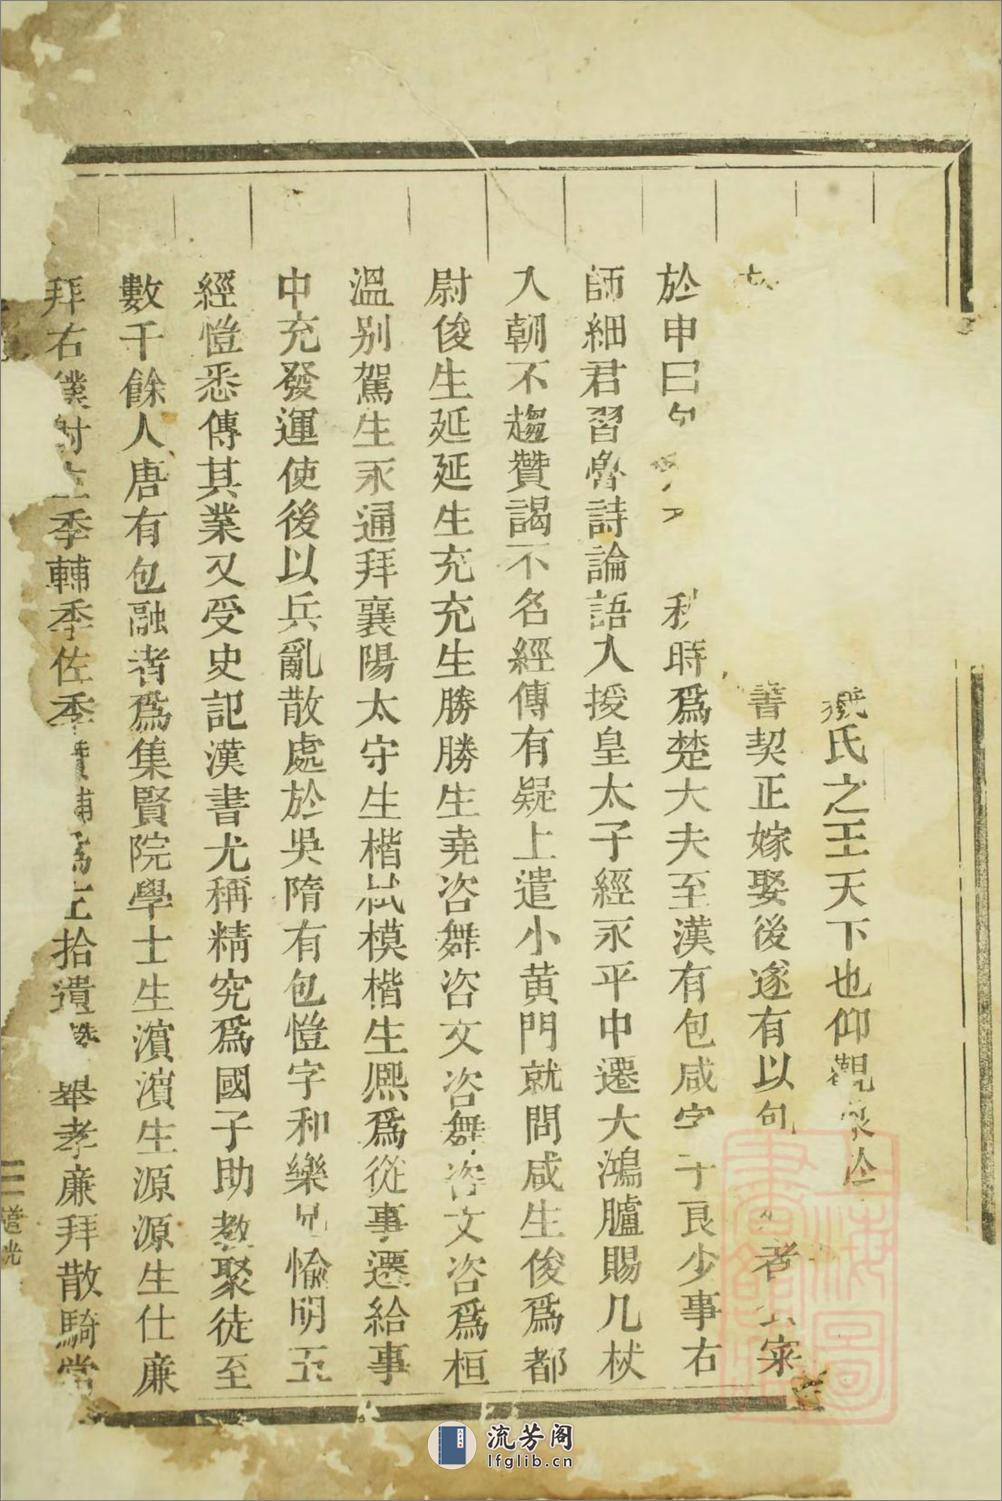 氏之王天下也仰觀
書契正嫁娶後遂有以 者
於申曰 時爲楚大夫至漢有包咸字子良少事右
師細君習魯詩論語入授皇太子經永平中遷大鴻臚賜几杖
入朝不趨贊謁不名經傳有疑上遣小黃門就問咸生俊爲都
尉俊生延延生充充生勝勝生堯咨舞咨文咨舞咨文咨爲桓
溫別駕生永通拜襄陽太守生楷栻模楷生熙爲從事遷給事
中充發運使後以兵亂散處於吳隋有包愷字和樂兄愉明五
經愷悉傳其業又受史記漢書尤稱精究爲國子助教聚徒至
數千餘人唐有包融者爲集賢院學士生濵濵生源源生仕廉
拜右僕射生季輔季佐季 輔爲左拾遺 舉孝廉拜散騎常
道光
上海圖書館藏
流芳阁
lfglib.cn